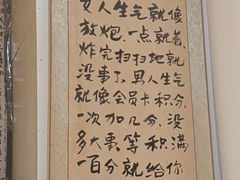 女人生气就像
放炮，一点就着，
炸完扫扫地就
没事了，男人生气
就像会员卡积分，
一次加几分，没
多大事，等积满
一百分就给你